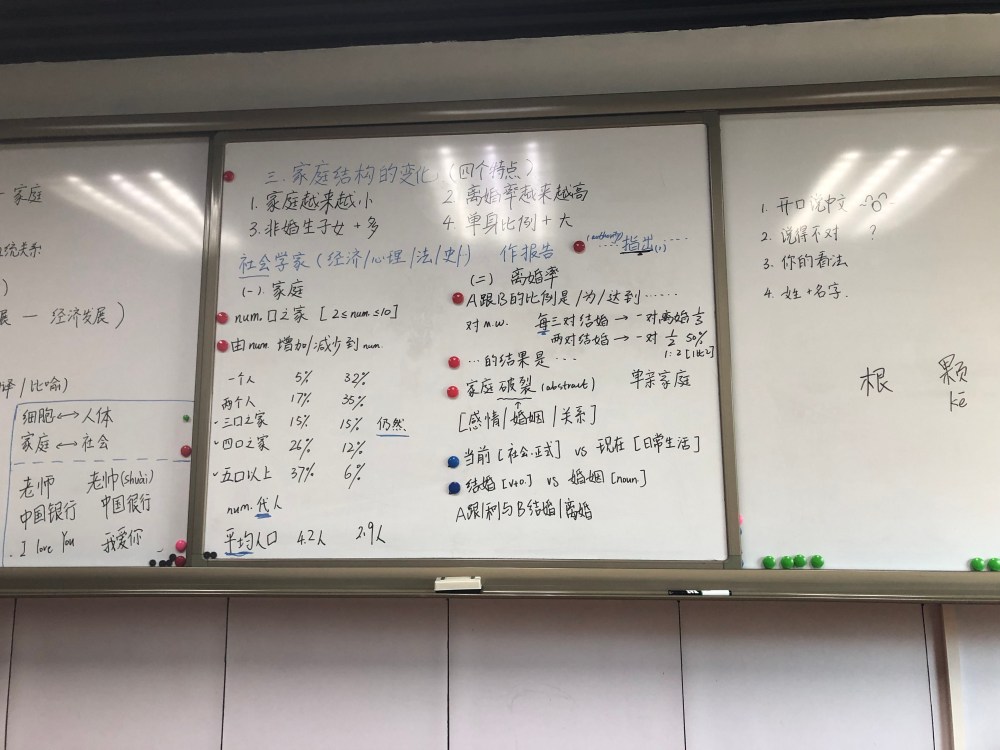 家庭
统关系
展 — 经济发展)
译/比喻)
细胞 ↔ 人体
家庭 ↔ 社会
老师 老帅(shuài)
中国银行 中国很行
I love You 我爱你
三.家庭结构的变化 (四个特点)
1. 家庭越来越小 2 离婚率越来越高
3. 非婚生子女 + 多 4. 单身比例 + 大
社会学家 (经济/心理/法/史/) 作报告 (authority) 指出
(一). 家庭
num.口之家 [2≤num.≤10]
由num. 增加/减少到 num.
一个人 5% 32%
两个人 17% 35%
三口之家 15% 15% 仍然
四口之家 26% 12%
五口以上 37% 6%
num. 代人
平均人口 4.2人 2.9人
(二) 离婚率
A跟B的比例是/为/达到……
对 m.w. 每三对结婚 → 一对离婚 1/3
两对结婚 → 一对 1/2 50%
1:2 [1比2]
…的结果是…
家庭破裂 (abstract) 单亲家庭
[感情/婚姻/关系]
当前 [社会.正式] vs 现在 [日常生活]
结婚 [v+o.] vs 婚姻 [noun.]
A跟/和/与B结婚/离婚
1. 开口说中文
2. 说得不对 ?
3. 你的看法
4. 姓+名字.
根 颗
kē